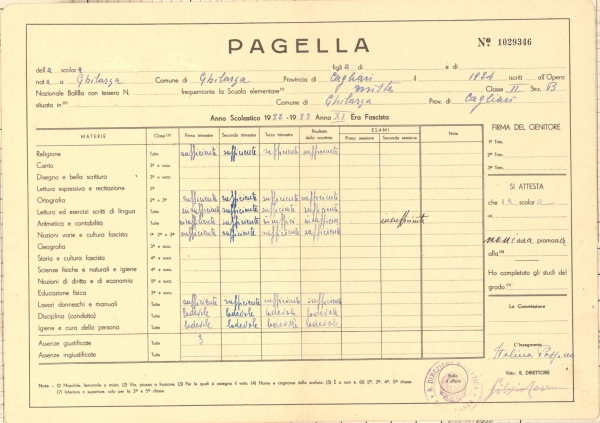 PAGELLA
Nº 1029346
dell a scolar a figli a di e di
nat a a Ghilarza Comune di Ghilarza Provincia di Cagliari il 1924 iscritt all'Opera
Nazionale Balilla con tessera N. frequentante la Scuola elementare (1) mista Classe II Sez. B
situata in (2) Comune di Ghilarza Prov. di Cagliari
Anno Scolastico 1932-1933 Anno XI Era Fascista
MATERIE Classi (3) Primo trimestre Secondo trimestre Terzo trimestre Risultato dello scrutinio ESAMI Prima sessione Seconda sessione Note
Religione Tutte sufficiente sufficiente sufficiente sufficiente
Canto 3ª e succ.
Disegno e bella scrittura 3ª e succ.
Lettura espressiva e recitazione 3ª
Ortografia 2ª e 3ª sufficiente sufficiente sufficiente sufficiente
Lettura ed esercizi scritti di lingua Tutte insufficiente sufficiente sufficiente sufficiente
Aritmetica e contabilità Tutte insufficiente insufficiente
Nozioni varie e cultura fascista 1ª 2ª e 3ª sufficiente sufficiente sufficiente sufficiente
Geografia 3ª e succ.
Storia e cultura fascista 4ª e succ.
Scienze fisiche e naturali e igiene 4ª e succ.
Nozioni di diritto e di economia 5ª e succ.
Educazione fisica
Lavori donneschi e manuali Tutte sufficiente sufficiente sufficiente sufficiente
Disciplina (condotta) Tutte lodevole lodevole lodevole lodevole
Igiene e cura della persona Tutte lodevole lodevole lodevole lodevole
Assenze giustificate Tutte 3
Assenze ingiustificate Tutte
FIRMA DEL GENITORE
1º Trim.
2º Trim.
3º Trim.
SI ATTESTA
che l a scolar a
non è stat a promoss a
alla
Ha completato gli studi del
grado (7)
La Commissione
L'Insegnante
Visto: IL DIRETTORE
Bollo d'ufficio
Note - (1) Maschile, femminile o mista. (2) Via, piazza o frazione. (3) Per le quali si assegna il voto. (4) Nome e cognome dello scolaro. (5) È o non è. (6) 2ª, 3ª, 4ª, 5ª classe.
(7) Inferiore o superiore, solo per la 3ª e 5ª classe.